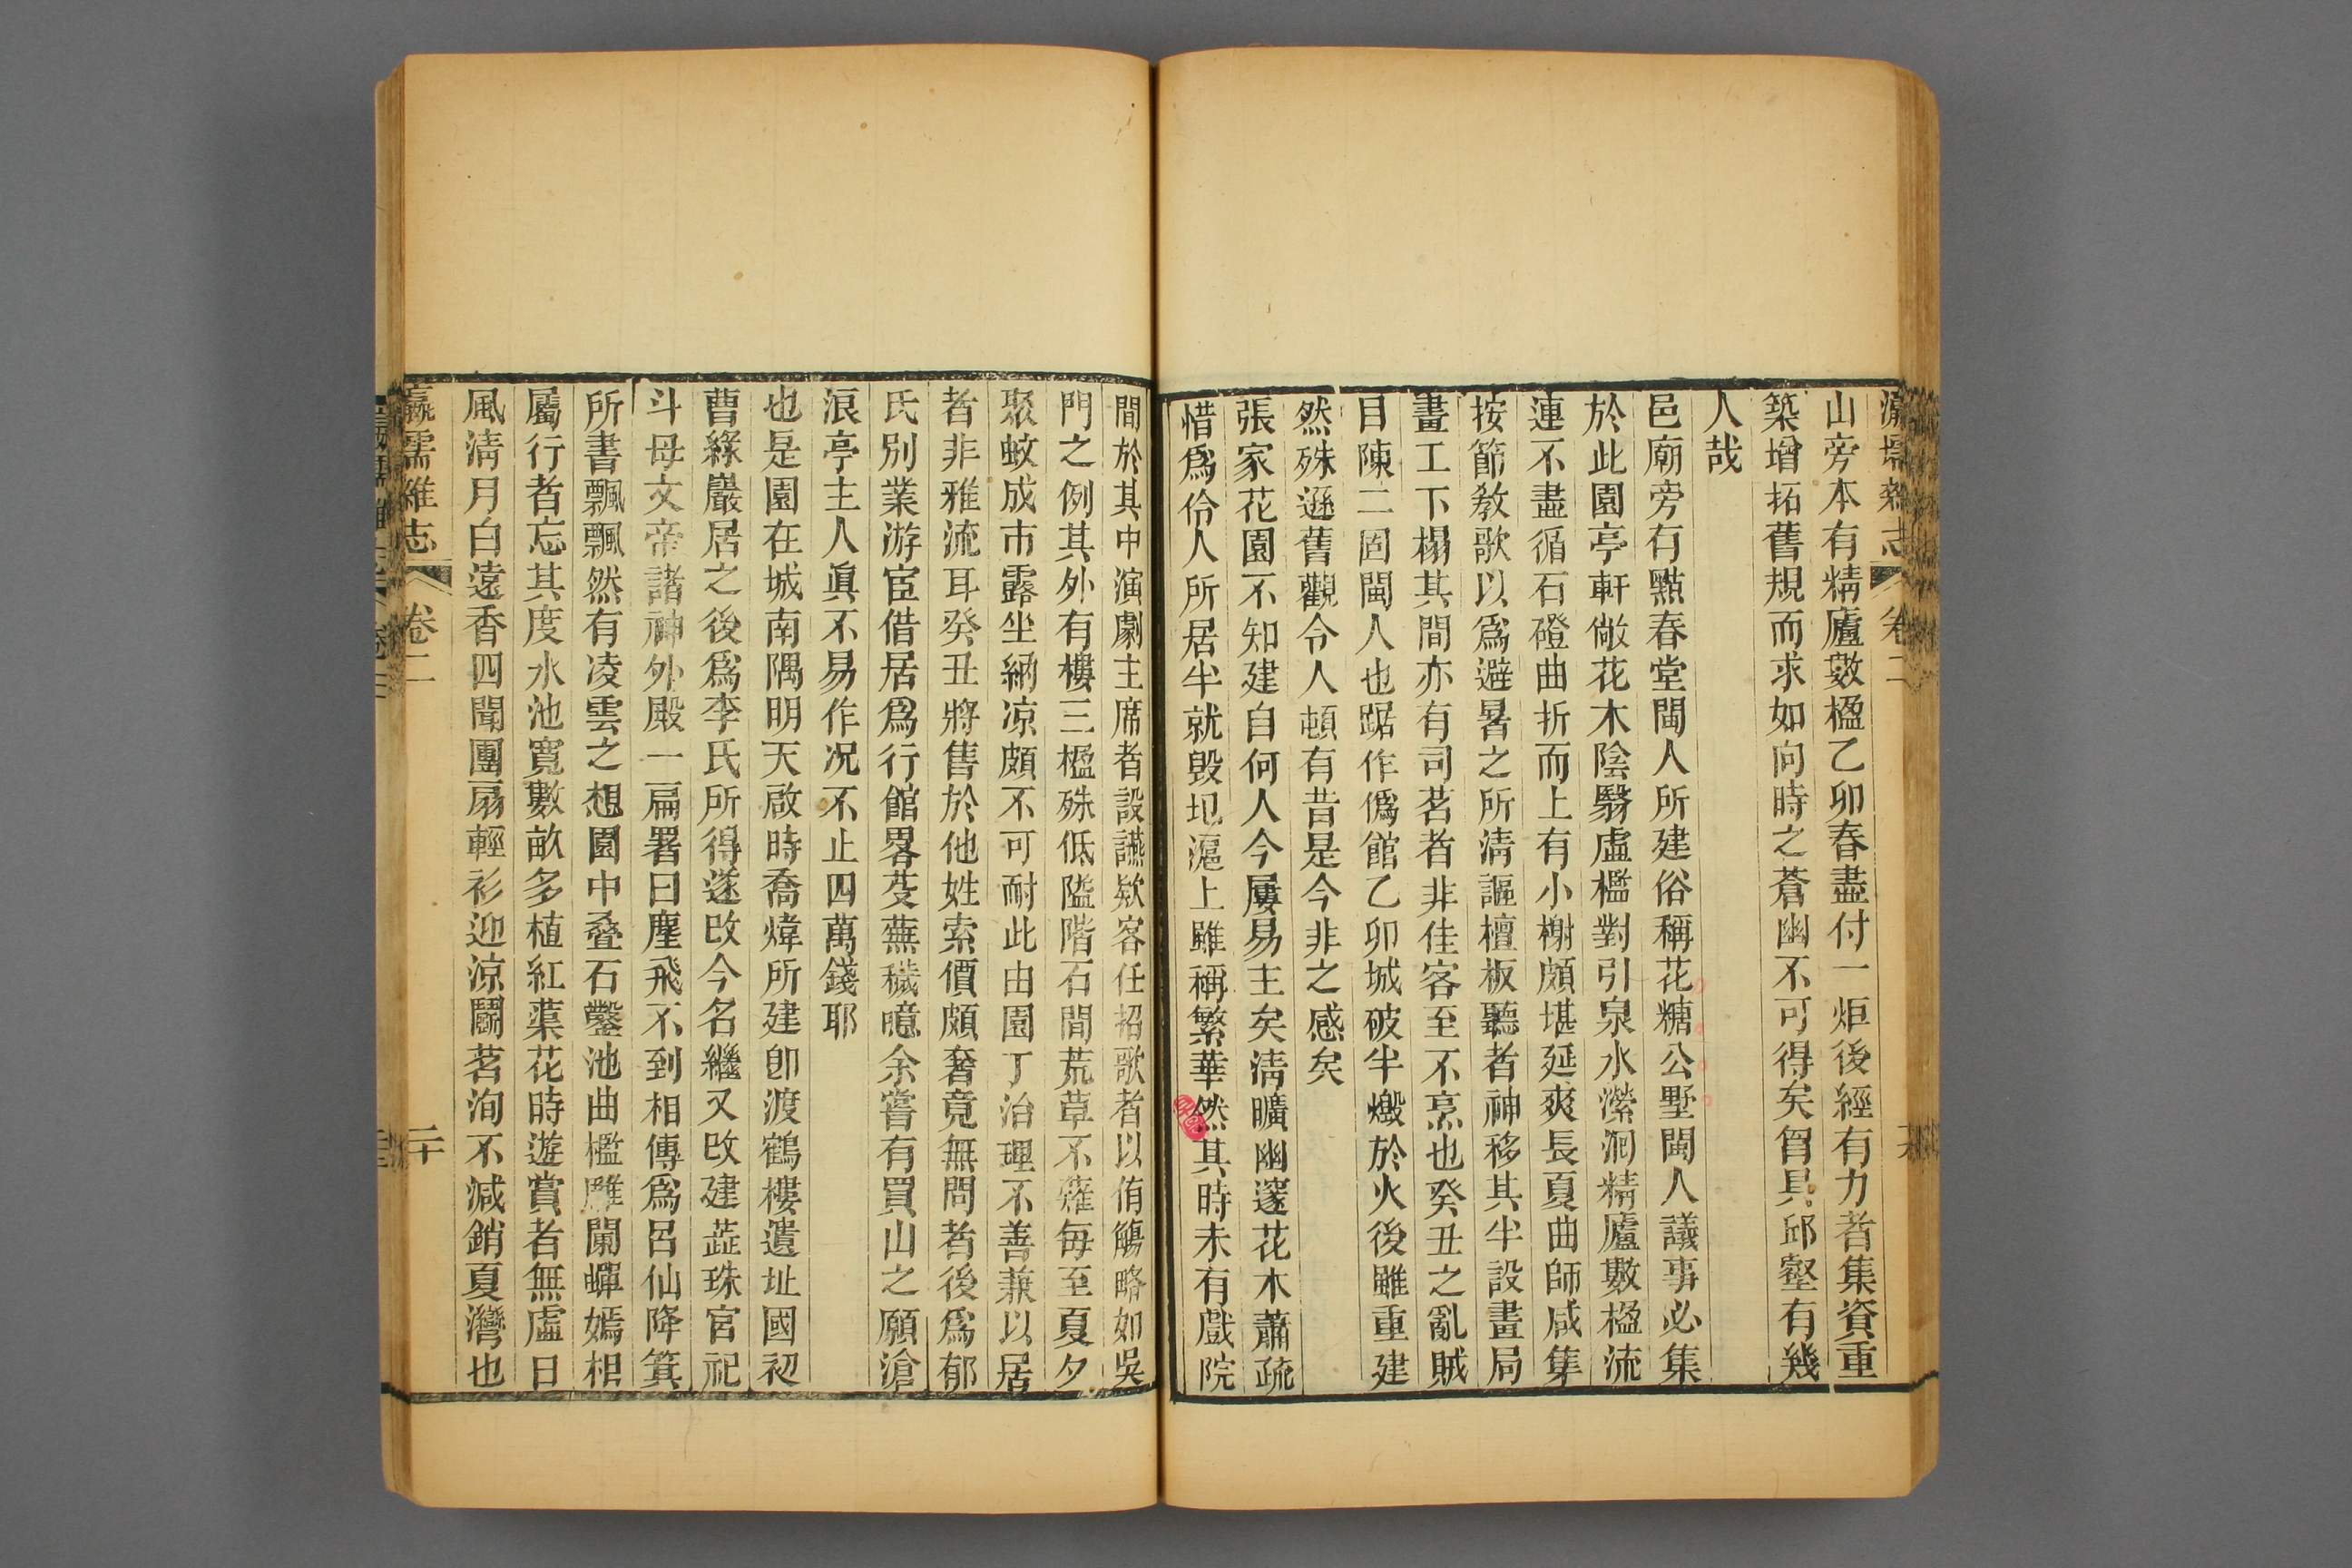 瀛壖雜志 卷二
山旁本有精廬數楹乙卯春盡付一炬後經有力者集資重
築增拓舊規而求如向時之蒼幽不可得矣胷具邱壑有幾
人哉
邑廟旁有點春堂閩人所建俗稱花糖公墅閩人議事必集
於此園亭軒敞花木陰翳虛檻對引泉水瀠洄精廬數楹流
連不盡循石磴曲折而上有小榭頗堪延爽長夏曲師咸集
按節敎歌以爲避暑之所淸謳檀板聽者神移其半設畫局
畫工下榻其間亦有司茗者非佳客至不烹也癸丑之亂賊
目陳二固閩人也踞作僞館乙卯城破半燬於火後雖重建
然殊遜舊觀令人頓有昔是今非之感矣
張家花園不知建自何人今屢易主矣淸曠幽邃花木蕭疏
惜爲伶人所居半就毀圯滬上雖稱繁華然其時未有戲院
間於其中演劇主席者設讌欵客任招歌者以侑觴略如吳
門之例其外有樓三楹殊低隘階石間荒草不薙每至夏夕
聚蚊成市露坐納凉頗不可耐此由園丁治理不善兼以居
者非雅流耳癸丑將售於他姓索價頗奢竟無問者後爲郁
氏別業游宦借居爲行館畧芟蕪穢噫余嘗有買山之願滄
浪亭主人眞不易作况不止四萬錢耶
也是園在城南隅明天啟時喬煒所建卽渡鶴樓遺址國初
曹綠巖居之後爲李氏所得遂改今名繼又改建蕋珠宮祀
斗母文帝諸神外殿一扁署曰塵飛不到相傳爲呂仙降箕
所書飄飄然有凌雲之想園中叠石鑿池曲檻雕闌蟬嫣相
屬行者忘其度水池寬數畝多植紅蕖花時遊賞者無虛日
風淸月白遠香四聞團扇輕衫迎凉鬪茗洵不減銷夏灣也
瀛壖雜志 卷二 二十